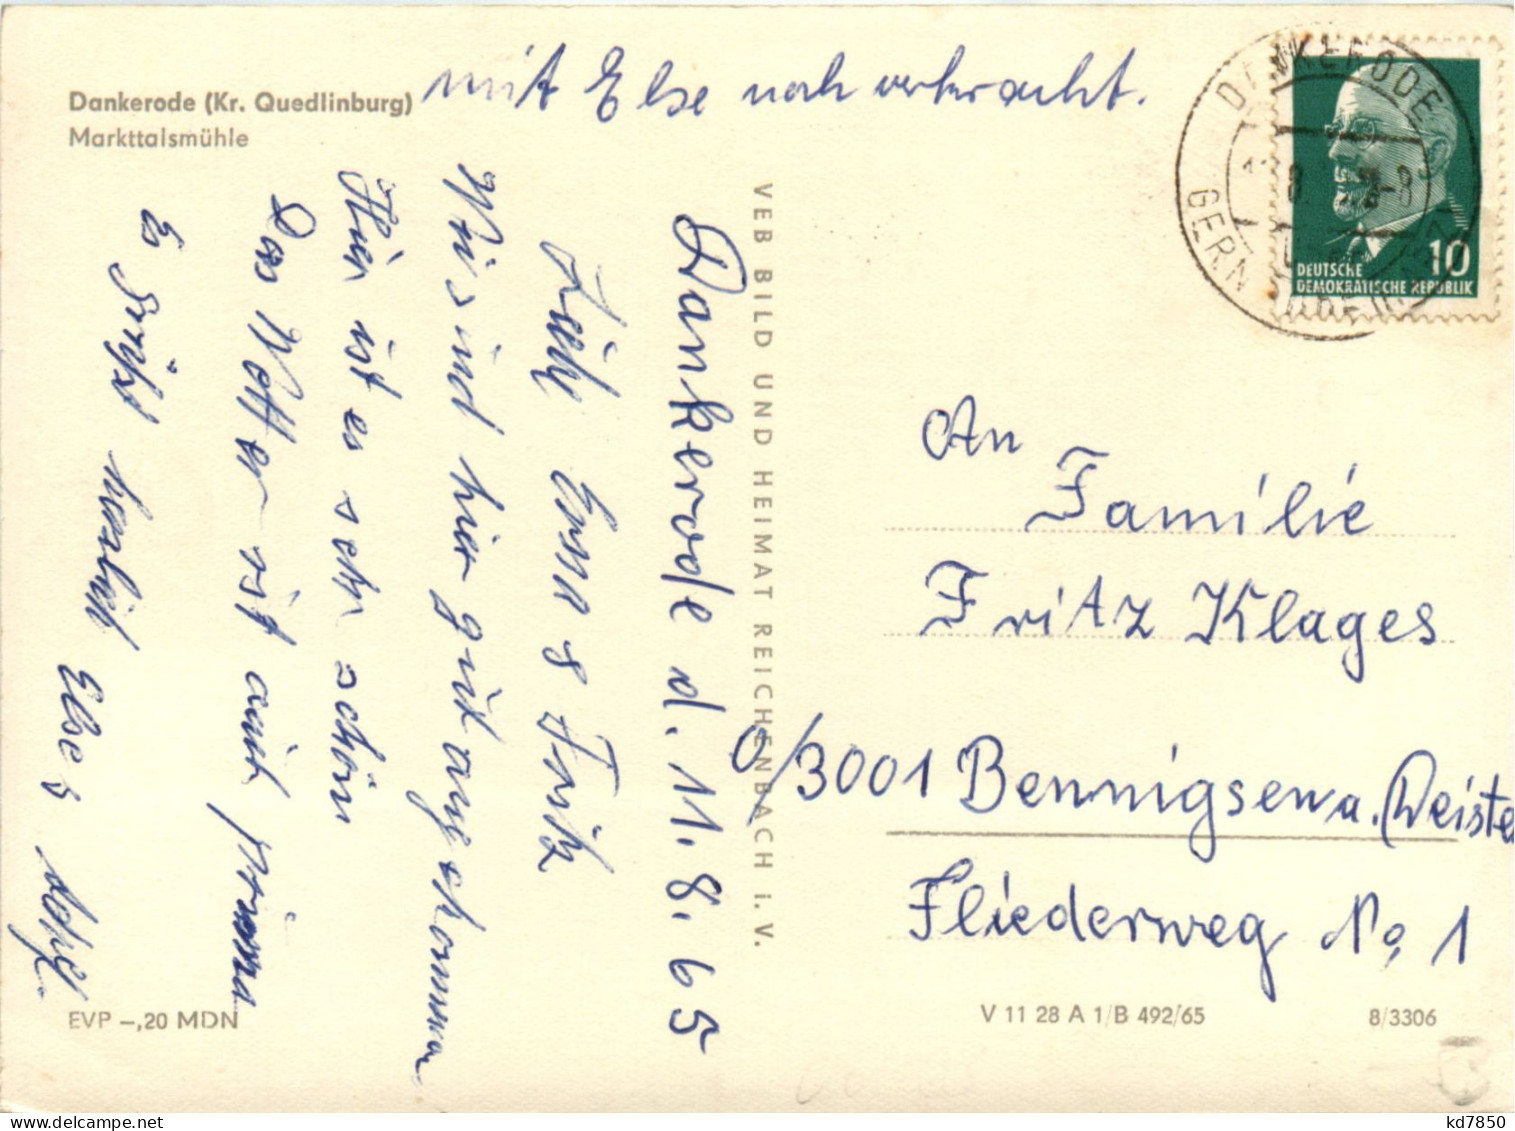 Dankerode (Kr. Quedlinburg)
Markttalsmühle
mit Else noch verkracht.
Dankerode d. 11. 8. 65
Erna & Fritz
Wir sind hier gut angekommen
Hier ist es sehr schön
Das Wetter ist auch prima
Es grüßt herzlich Else &
VEB BILD UND HEIMAT REICHENBACH I. V.
DANKERODE
GERNRODE
DEUTSCHE
DEMOKRATISCHE REPUBLIK
10
An
Familie
Fritz Klages
3001 Bennigsen a. Deister
Fliederweg No. 1
EVP –,20 MDN
V 11 28 A 1/B 492/65
8/3306
kd7850